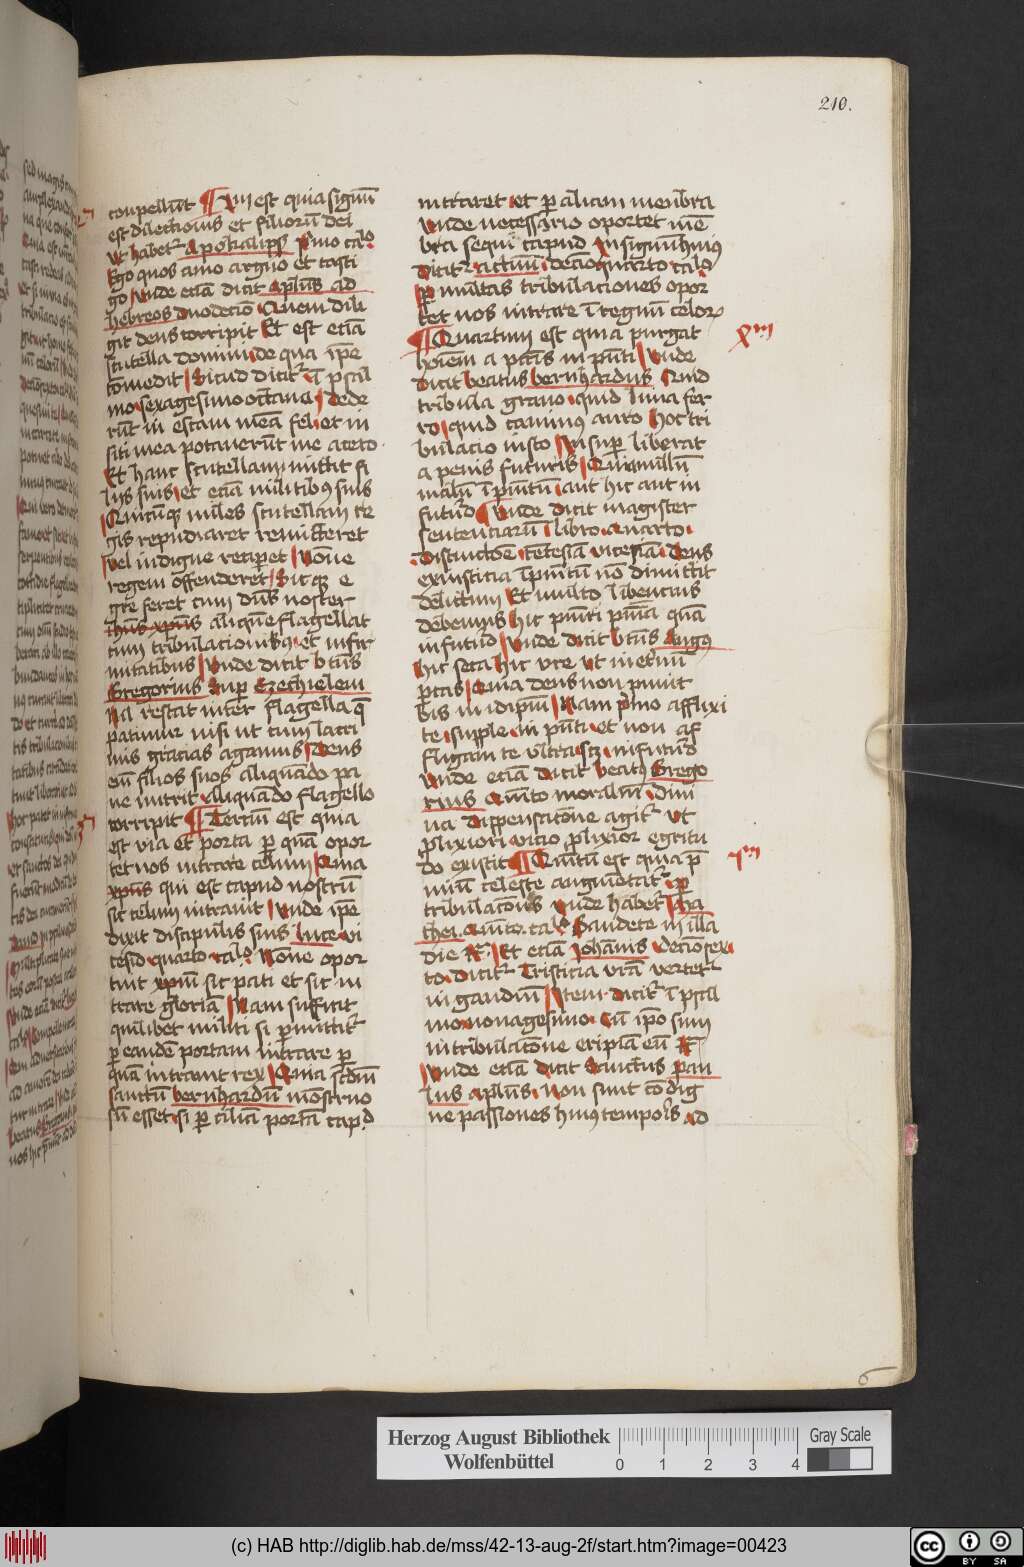 210.
compellunt ¶ Qui est quia signū
est dilectionis et filiorū dei
vt habetr Apokalips pmo calo
Ego quos amo arguo et casti
go vnde eciā dicit aplūs ad
hebreos duodecīo Quem dili
git deus corripit Et est eciā
scutella domini de qua ipē
cōmedit Sicud dicitr ī psal
mo sexagesimo octauo Dede
rūt in escam meā fel et in
siti mea potauerūt me aceto
Et hanc scutellam mittit fi
liis suis et eciā militibus suis
Quicūqz miles scutellam re
gis repudiaret remitteret
vel indigne reciperet Nōne
regem offenderet Sicqz e
gre feret cum dn̄s noster
ihūs xpūs aliquē flagellat
cum tribulacionibus et infir
mitatibus Vnde dicit btūs
Gregorius Sup Ezechielem
Na restat inter flagella q̄
patimur nisi ut cum lacri
mis gracias agamus Deus
eū filios suos aliquādo pa
ne nutrit aliquādo flagello
corripit ¶ Terciū est quia
est via et porta per quā opor
tet nos intrare celum Quia
xpūs qui est capud nostrū
sic celum intrauit Vnde ipē
dixit discipulis suis luce vi
cesīo quarto calo Nōne opor
tuit xpm̄ sic pati et sic in
trare gloriā Nam sufficit
quilibet militi si permittitr
per eandē portam intrare per
quā intrauit rex Quia scdm̄
sanctū bernhardū mōstruo
sū esset si per aliā portā capd
intraret et per aliam membra
Vnde necessario oportet mē
bra sequi capud in signū huius
dicitr actuū decīoquarto calo
Per multas tribulaciones opor
tet nos intrare ī regnū celorum
¶ Quartum est quia purgat
hoīem a pctīs in pn̄ti Vnde
dicit beatus bernhardus Quid
tribula grano quid lima fer
ro quid caminus auro hoc tri
bulacio iusto Insuper liberat
a penis futuris Quia nullū
malū īpūitū aut hic aut in
futuro Vnde dicit magister
sentenciarū libro quarto
Distinctōe tēcesīa vicesīa Deus
ex iusticia īpūitū nō dimittit
delictum Et multo libencius
debemus hic pūiri pn̄a quā
in futuro Vnde dicit btūs Augus
hic seca hic vre Vt in eternū
pcas Quia deus non punit
bis in idipm̄ Nam pmo afflixi
te supple in pn̄ti et non af
fligam te vltra scz in futuro
Vnde eciā dicit beatus Grego
rius Quīto moraliū diui
na dispensatōne agitr Vt
plixiori vicio plixior egritu
do existit ¶ Quītū est quia p̄
miū celeste augmētatr per
tribulatōnes vnde habetr Ma
thei quīto calo Gaudete in illa
die etc̄ Et eciā Johānis decīosex
to dicitr Tristicia vrā vertetr
in gaudiū Item dicitr ī psal
mo nonagesimo Cū ipo sum
in tribulatōne eripiā eū etc̄
Vnde eciā dicit Sanctus Pau
lus aplūs Non sunt cōdig
ne passiones huius temporis ad
Herzog August Bibliothek
Wolfenbüttel
0 1 2 3 4
Gray Scale
(c) HAB http://diglib.hab.de/mss/42-13-aug-2f/start.htm?image=00423
cc BY SA